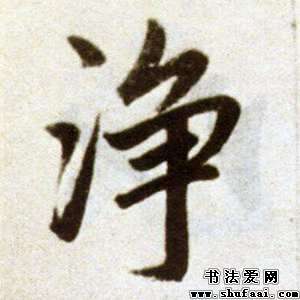 净
书法爱网
www.shufaai.com